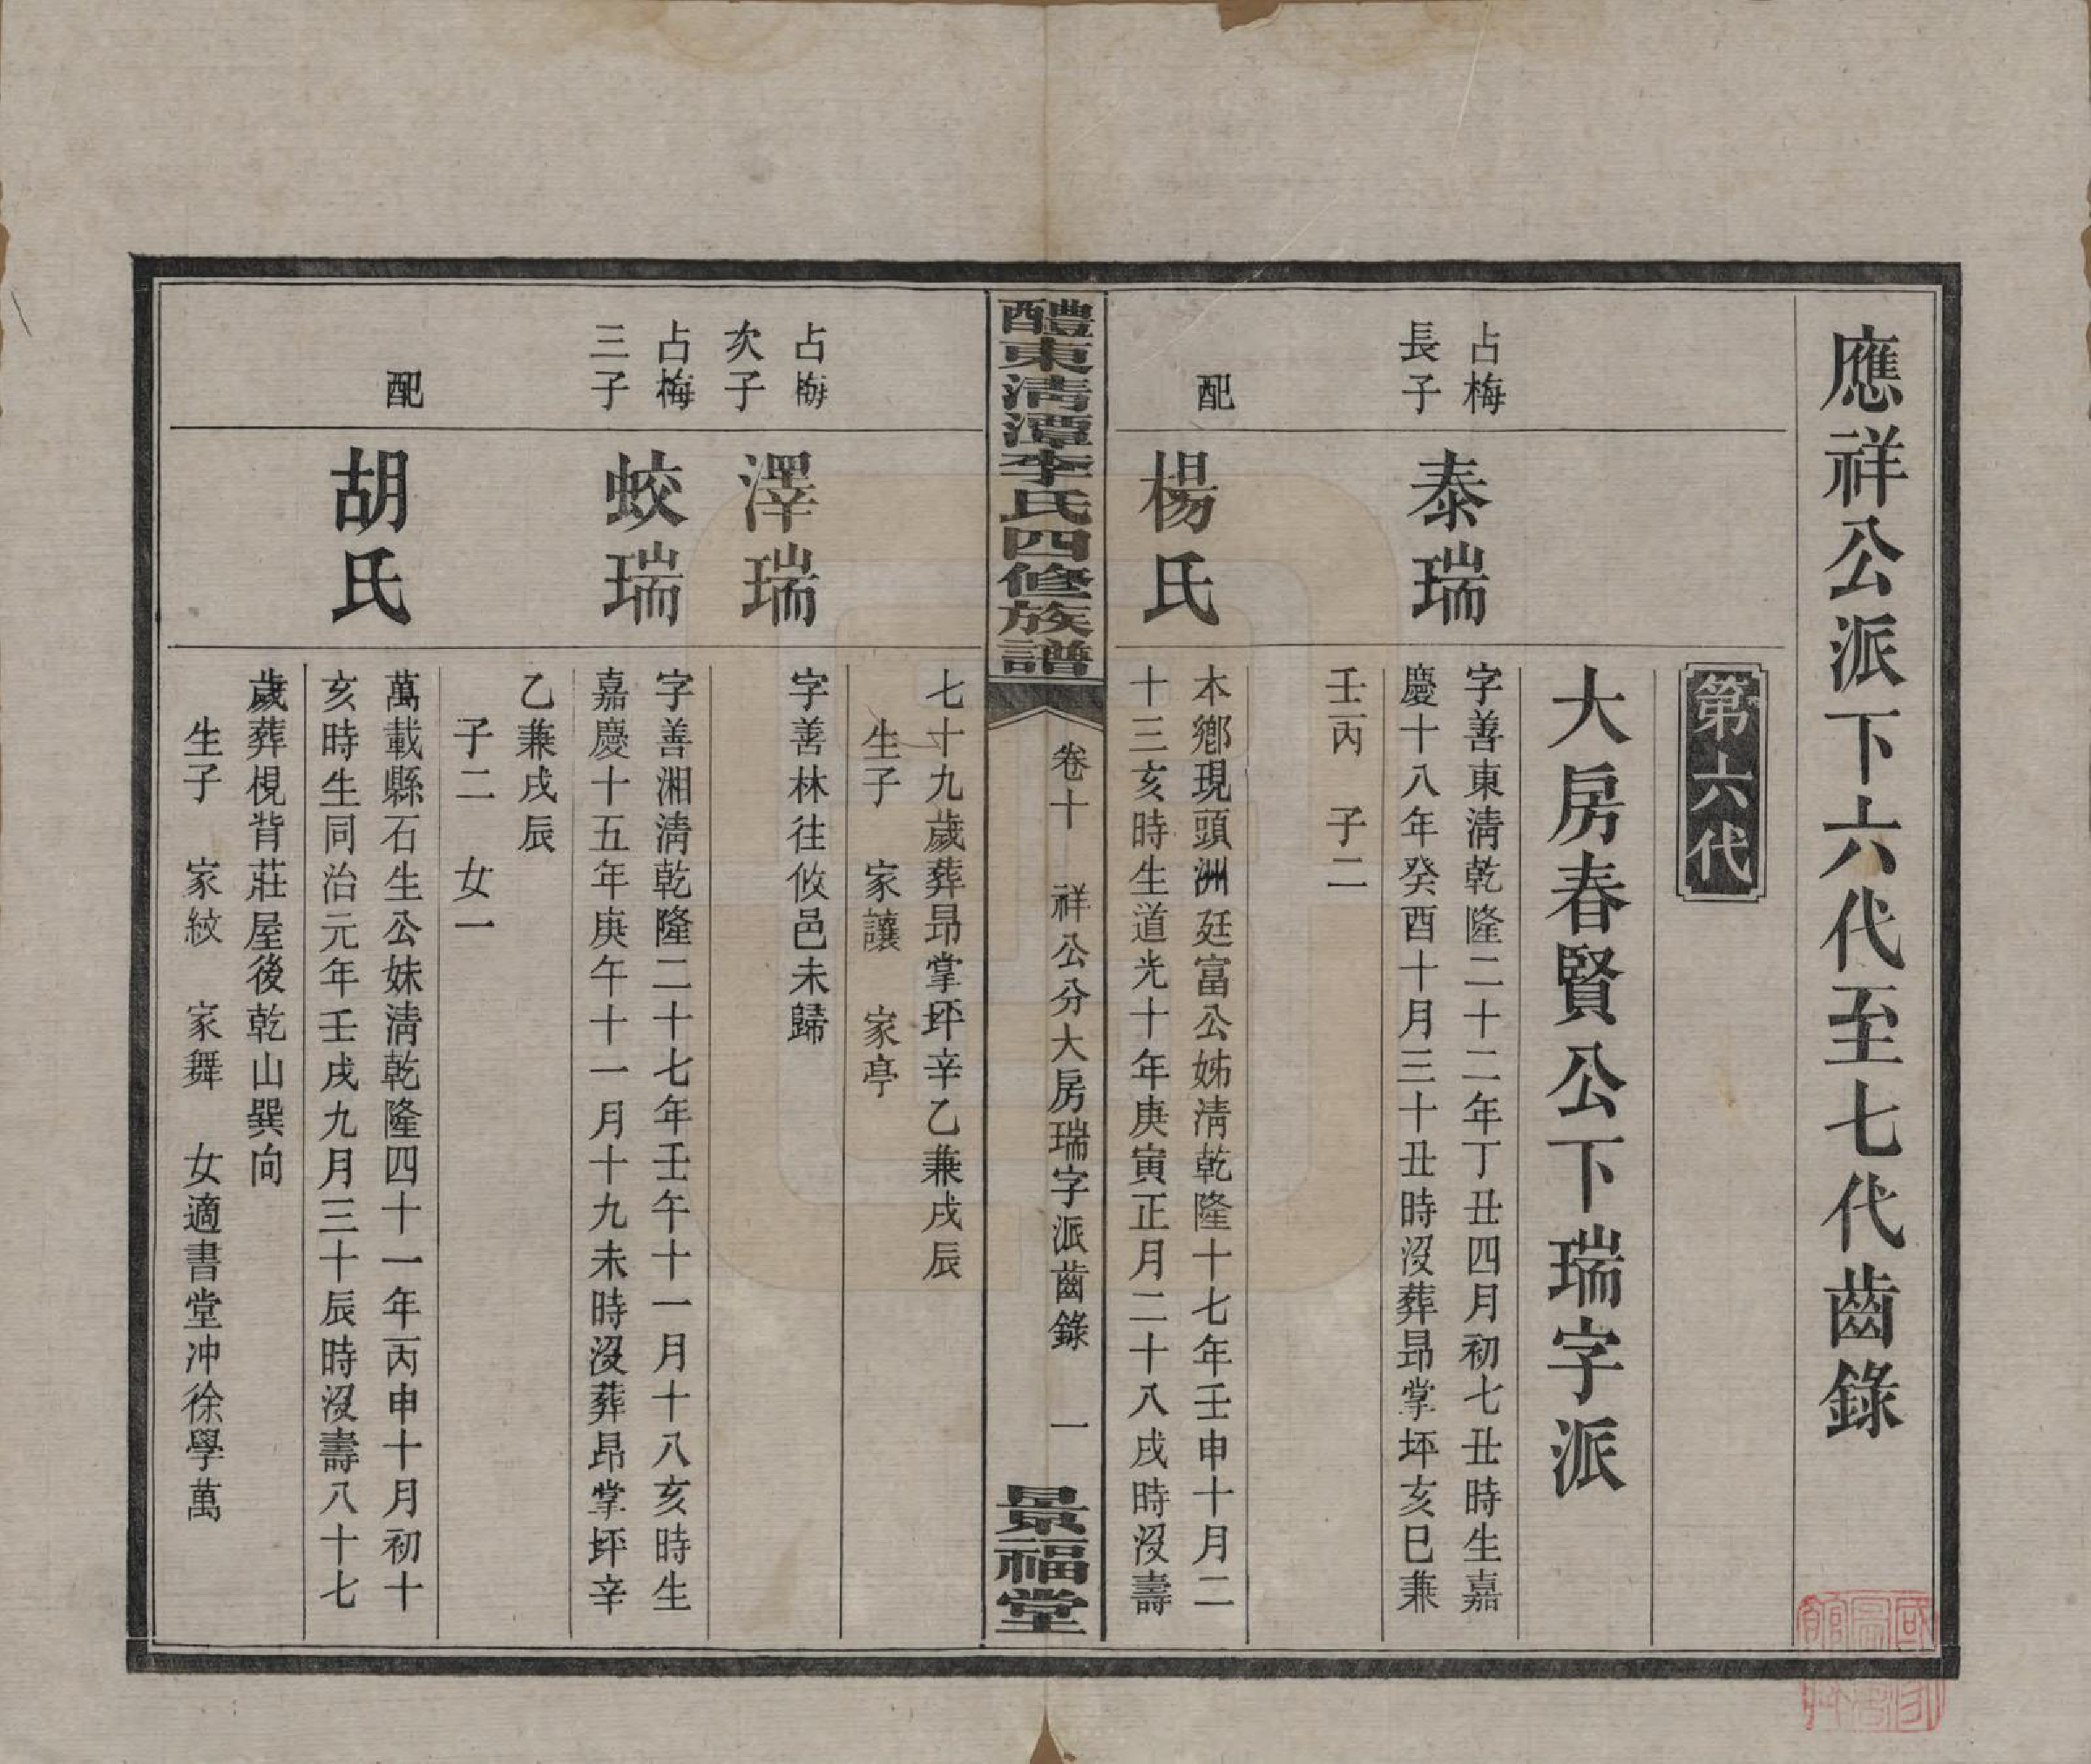 應祥公派下六代至七代齒錄
第六代
大房春賢公下瑞字派
占梅
長子
泰瑞
字善東淸乾隆二十二年丁丑四月初七丑時生嘉
慶十八年癸酉十月三十丑時沒葬昻掌坪亥巳兼
壬丙　子二
配
楊氏
本鄉現頭洲廷富公姊淸乾隆十七年壬申十月二
十三亥時生道光十年庚寅正月二十八戌時沒壽
醴東淸潭李氏四修族譜
卷十　祥公分大房瑞字派齒錄　一
景福堂
七十九歲葬昻掌坪辛乙兼戌辰
生子　家讓　家亭
占梅
次子
澤瑞
字善林往攸邑未歸
占梅
三子
蛟瑞
字善湘淸乾隆二十七年壬午十一月十八亥時生
嘉慶十五年庚午十一月十九未時沒葬昻掌坪辛
乙兼戌辰
子二　女一
配
胡氏
萬載縣石生公妹淸乾隆四十一年丙申十月初十
亥時生同治元年壬戌九月三十辰時沒壽八十七
歲葬梘背莊屋後乾山巽向
生子　家紋　家舞　女適書堂冲徐學萬